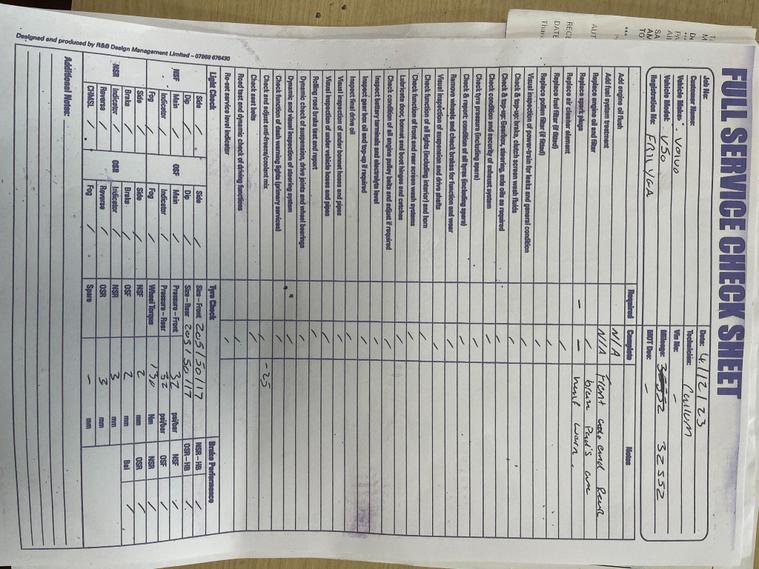 FULL SERVICE CHECK SHEET
Job No:
Date: 4/12/23
Customer Name:
Technician: Callum
Vehicle Make: Volvo
Vin No: -
Vehicle Model: V50
Mileage: 32552
Registration No:
MOT Due: -
Required
Complete
Notes
Add engine oil flush N/A
Add fuel system treatment N/A
Replace engine oil and filter /
Replace spark plugs - -
Replace air cleaner element /
Replace fuel filter (if fitted) /
Replace pollen filter (if fitted) /
Visual inspection of power-train for leaks and general condition /
Check & top-up: brake, clutch screen wash fluids /
Check & top-up: Gearbox, steering, axle oils as required /
Check condition and security of exhaust system /
Check tyre pressure (including spare) /
Check & report: condition of all tyres (including spare) /
Remove wheels and check brakes for function and wear /
Visual inspection of suspension and drive shafts /
Check function of all lights (including interior) and horn /
Check function of front and rear screen wash systems /
Lubricate door, bonnet and boot hinges and catches /
Check condition of all engine pulley belts and adjust if required /
Inspect battery terminals and electrolyte level /
Inspect rear axle oil and top-up if required /
Inspect final drive oil /
Visual inspection of under bonnet hoses and pipes /
Visual inspection of under vehicle hoses and pipes /
Rolling road brake test and report /
Dynamic check of suspension, drive joints and wheel bearings /
Dynamic and visual inspection of steering system /
Check function of dash warning lights (primary services) /
Check and adjust anti-freeze/coolant mix / -25
Check seat belts /
Road test and dynamic check of driving functions /
Re-set service level indicator /
Front and Rear
brake Pad's are
worn
Light Check
Tyre Check
Brake Performance
Side / Side / Size – Front 205/50/17 NSR – HB /
Dip / Dip / Size – Rear 205/50/17 OSR – HB /
NSF Main / OSF Main / Pressure – Front 32 psi/bar NSF /
Indicator / Indicator / Pressure – Rear 32 psi/bar OSF /
Fog / Fog / Wheel Torque 130 Nm NSR /
Side / Side / NSF 2 mm OSR /
Brake / Brake / OSF 2 mm Bal /
NSR Indicator / OSR Indicator / NSR 3 mm
Reverse / Reverse / OSR 3 mm
CHMSL / Fog / Spare - mm
Additional Notes:
Designed and produced by R&B Design Management Limited –